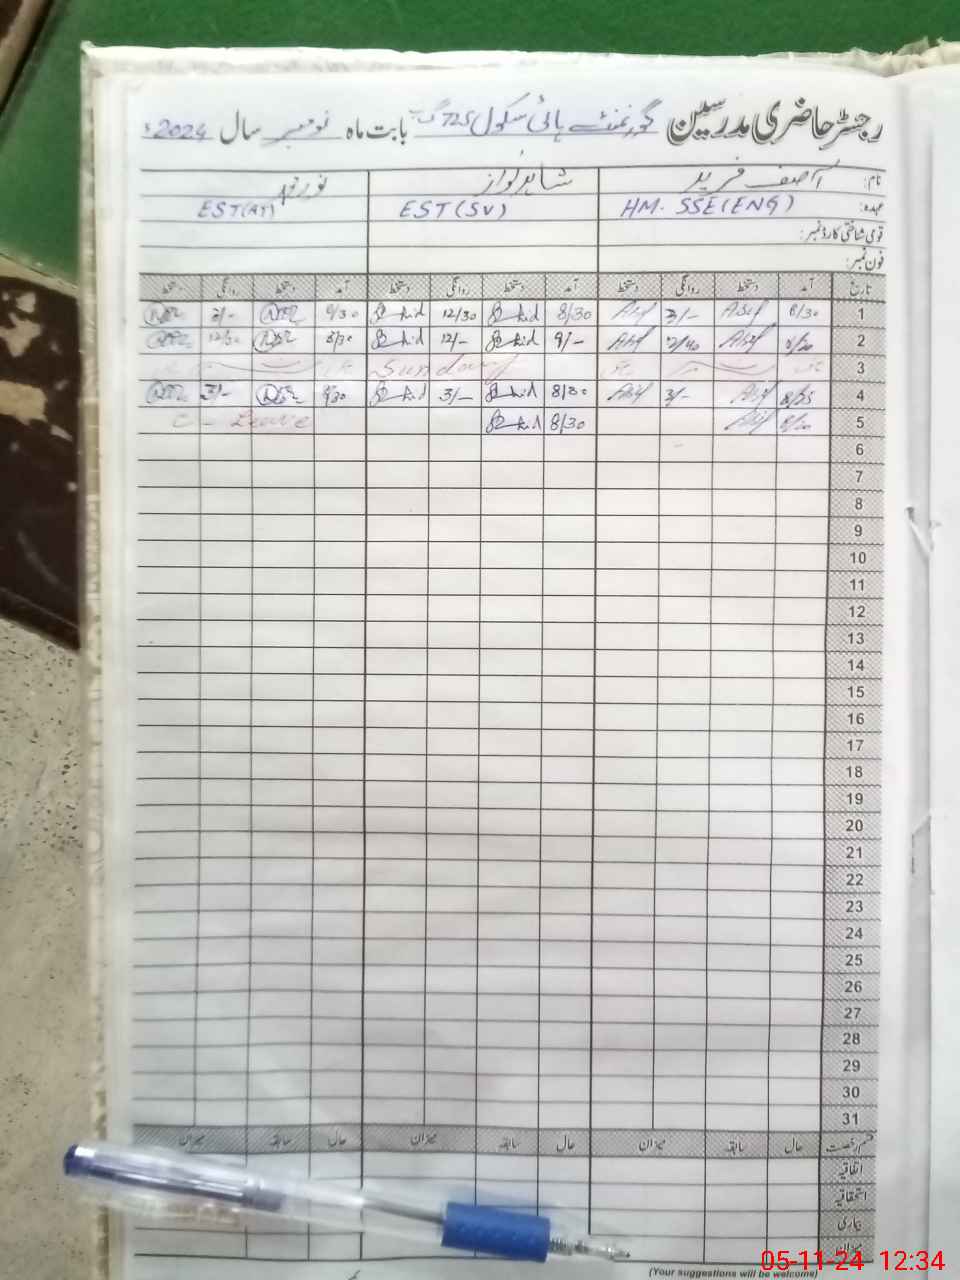 رجسٹر حاضری مدرسین گورنمنٹ ہائی سکول 725 گ ب بابت ماہ نومبر سال 2024ء
نام: آصف فرید شاہد نواز نور محمد
عہدہ: HM. SSE(ENG) EST(SV) EST(AT)
قومی شناختی کارڈ نمبر:
فون نمبر:
تاریخ آمد دستخط روانگی دستخط آمد دستخط روانگی دستخط آمد دستخط روانگی دستخط
1 8/30 Asif 3/- Asif 8/30 12/30 3/-
2 8/20 Asif Asif 9/- 12/- 8/30 12/30
3 Sunday
4 8/25 Asif 3/- Asif 8/30 3/- 3/-
5 8/20 Asif 8/30 C - Leave
6
7
8
9
10
11
12
13
14
15
16
17
18
19
20
21
22
23
24
25
26
27
28
29
30
31
قسم رخصت حال سابقہ میزان حال سابقہ میزان حال سابقہ میزان
اتفاقیہ
استحقاقیہ
بیماری
میزان
(Your suggestions will be welcome)
05-11-24 12:34